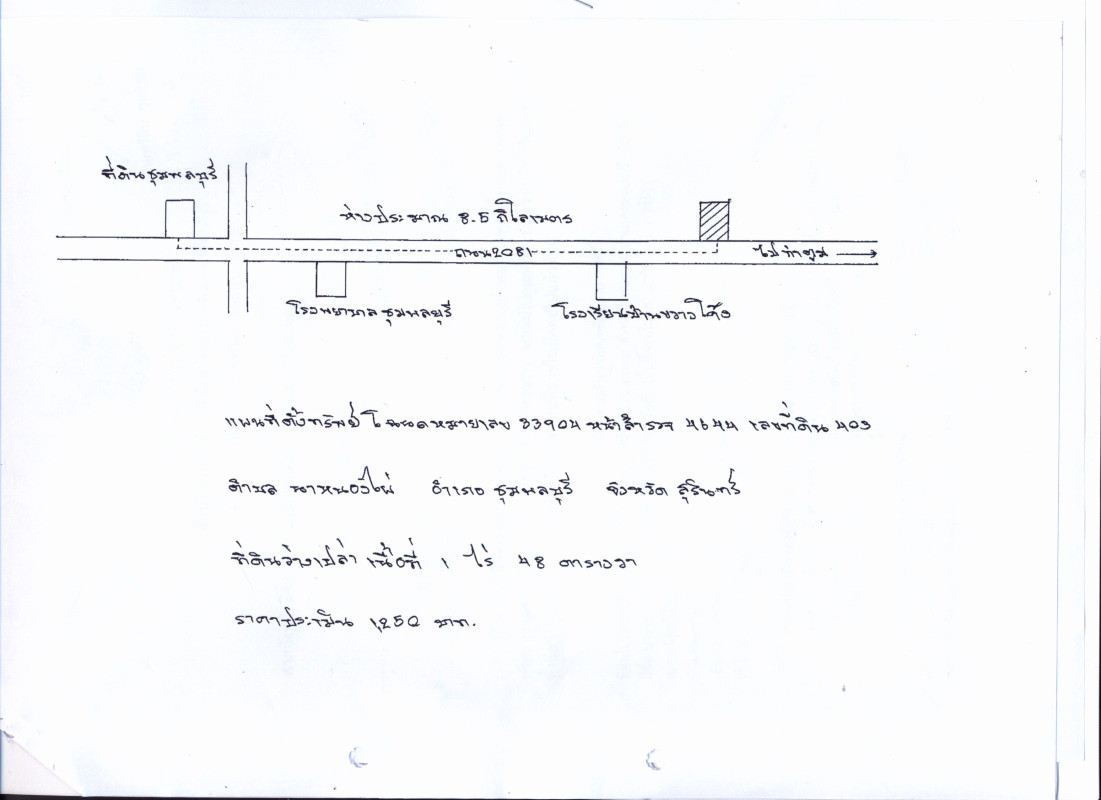 ที่ดินชุมพลบุรี
ห่างประมาณ 8.5 กิโลเมตร
ถนน 2081
ไปท่าตูม
โรงพยาบาลชุมพลบุรี
โรงเรียนบ้านขวาวโค้ง
แผนที่ตั้งทรัพย์ โฉนดหมายเลข 33904 หน้าสำรวจ 4644 เลขที่ดิน 403
ตำบล นาหนองไผ่ อำเภอ ชุมพลบุรี จังหวัด สุรินทร์
ที่ดินว่างเปล่า เนื้อที่ 1 ไร่ 48 ตารางวา
ราคาประเมิน 1,250 บาท.